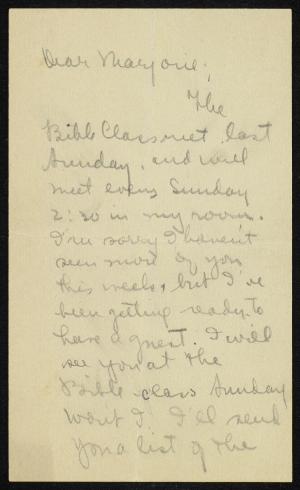 Dear Marjorie;
The
Bible Class met last
Sunday, and will
meet every Sunday
2:30 in my room.
I'm sorry I haven't
seen more of you
this week, but I've
been getting ready to
have a guest. I will
see you at the
Bible class Sunday
won't I? I'll send
you a list of the